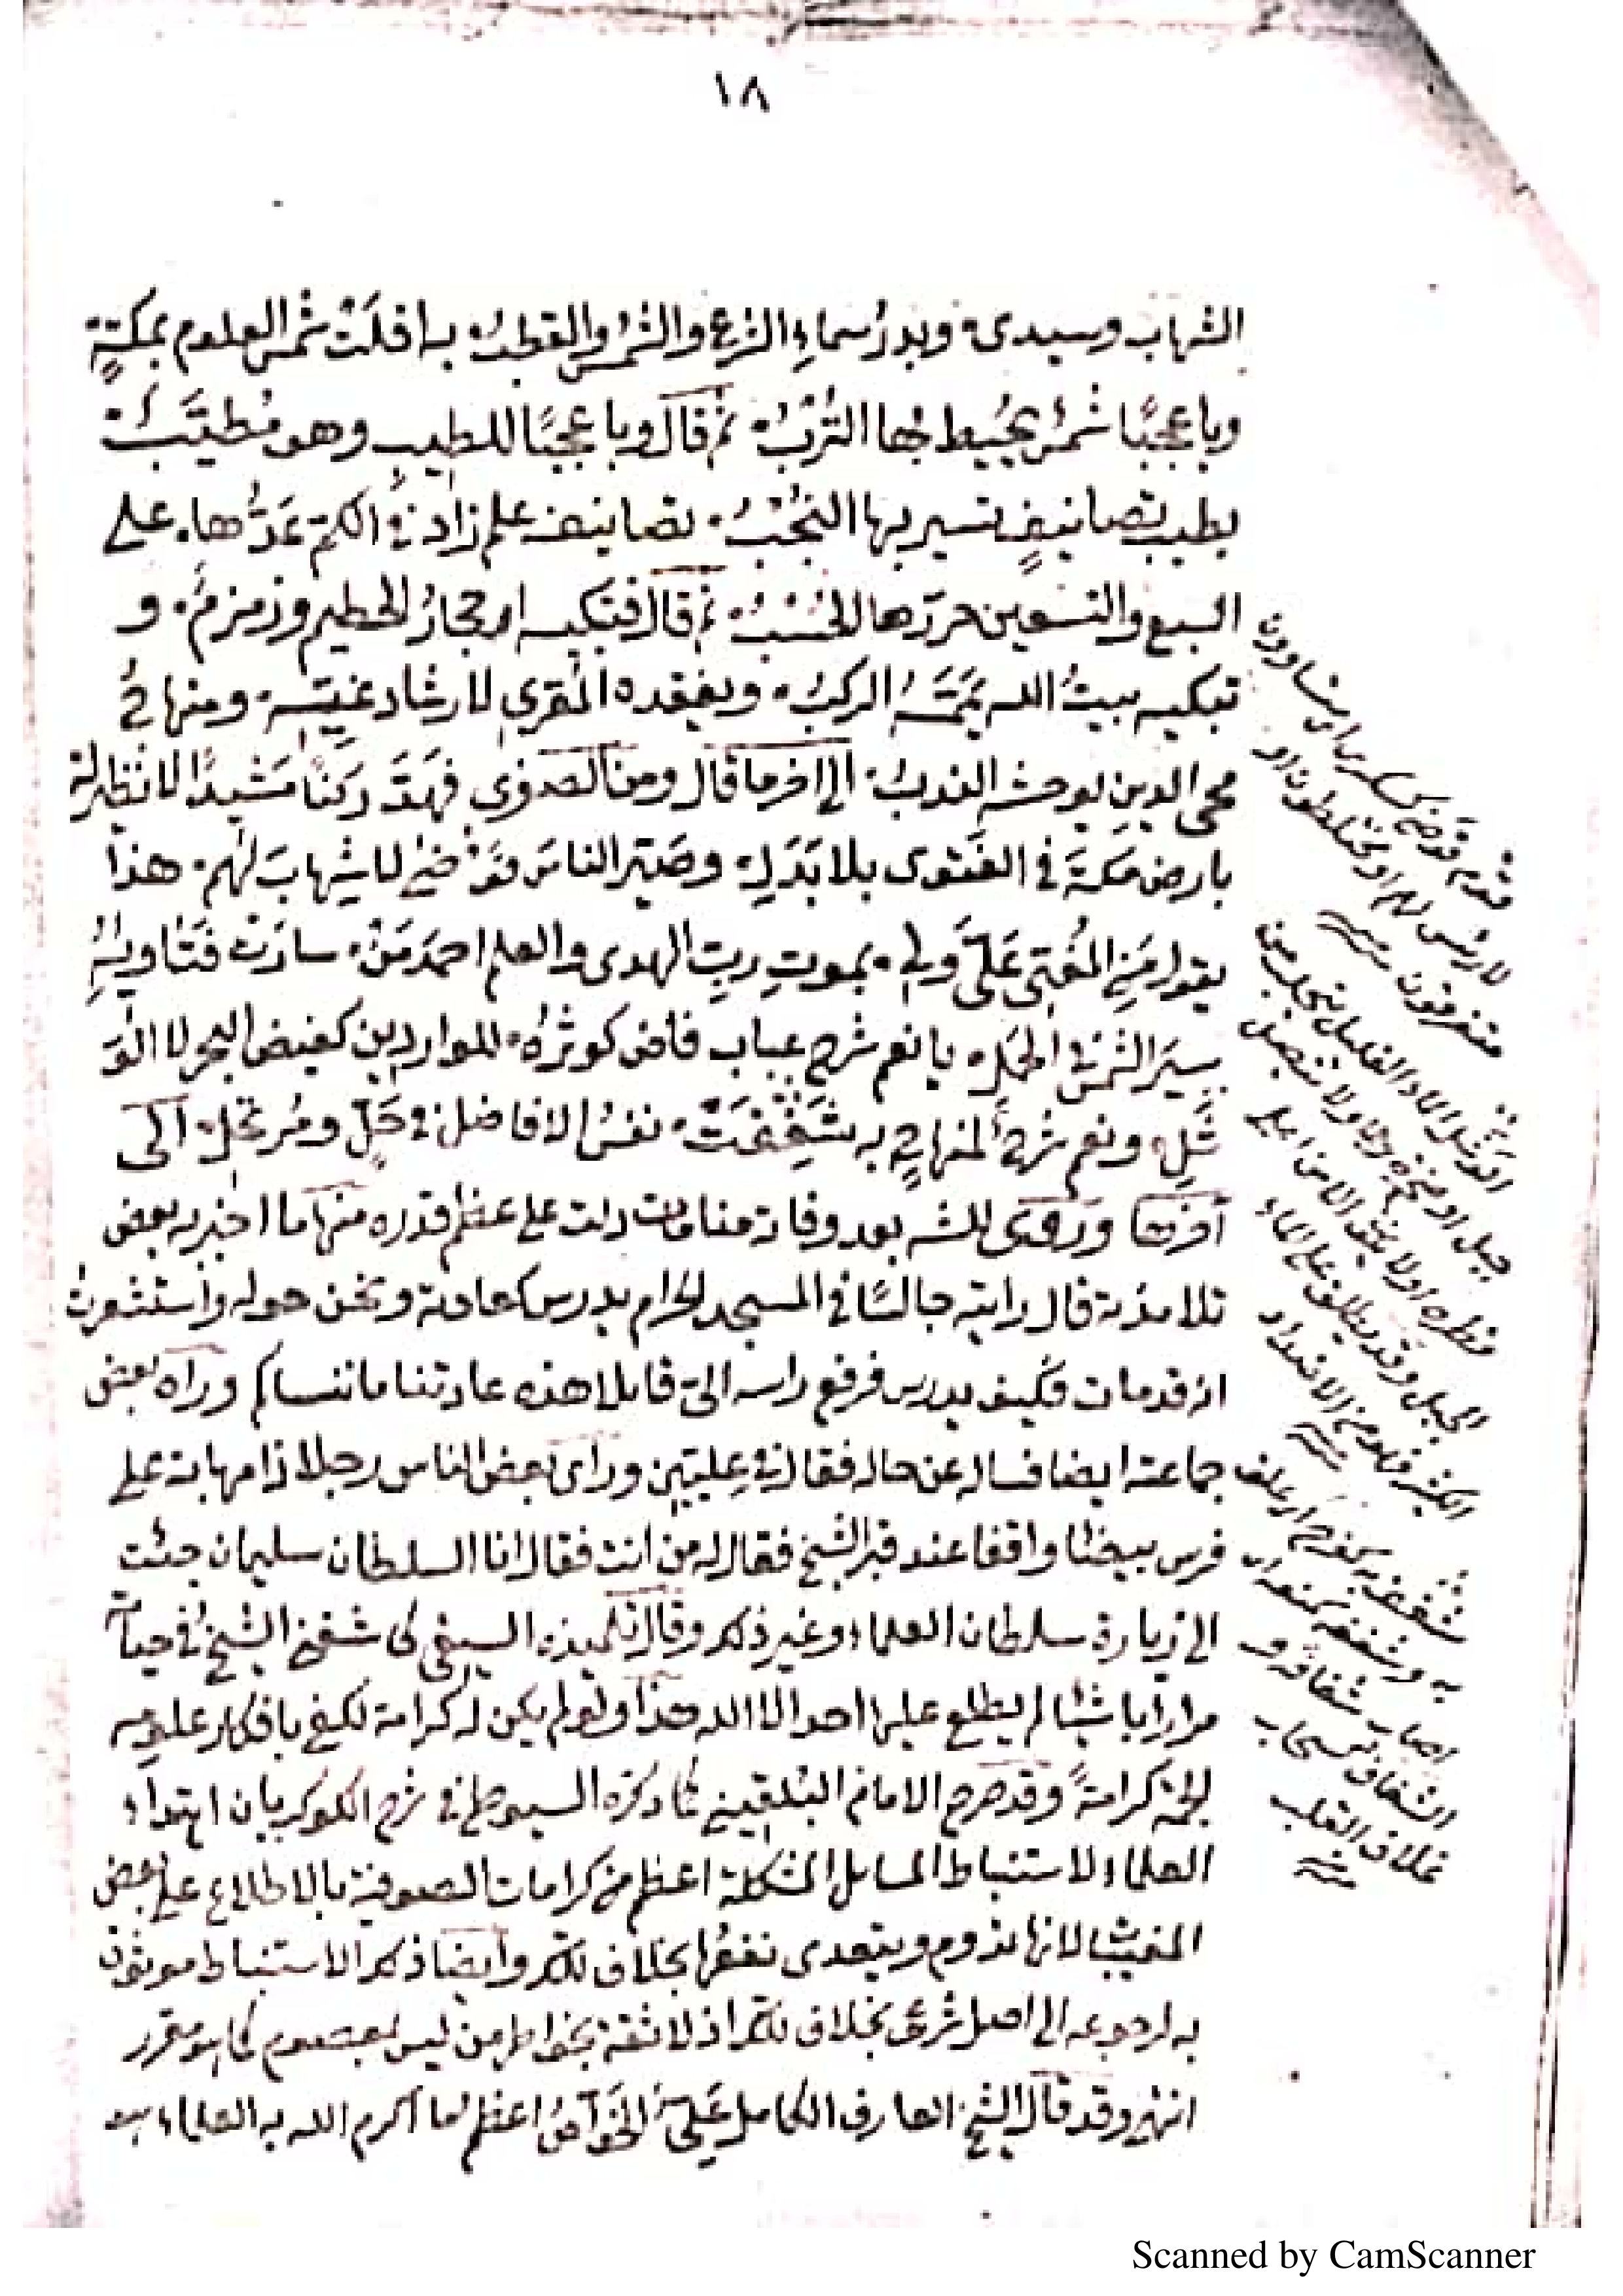 ١٨
الشهاب وسيدي ۰ وبدرُ سماءِ الشرع والشمسُ والقطبُ ۰ بها فلَتْ شمس العلوم بمكةٍ ۰
ويا عجبًا شمسٌ يحيط بها التُرْبُ ۰ ثم قال ويا عجبًا للطيب وهو مُطيَّبٌ ۰
بطيب تصانيفٍ تسير بها النُجُبُ ۰ تصانيف علم زاد في الكم عَدُّها ۰ على
السبع والتسعين حررها الحُسْبُ ۰ ثم قال فتبكيه احجارُ الحطيم وزمزمُ ۰ و
تبكيه بيتُ الله يَمَّمَهُ الركبُ ۰ ويفقده المقري لارشاد غيّه ۰ ومنهاجُ
محي الدين يوحشه الندبُ ۰ الى اخر ما قال ومن الصفوي فهَدَّ ركنًا مَشيدًا لا نظير له
بارض مكةَ في الفتوى بلا بَدَلِ ۰ وصيّر الناسَ فَوْضىٰ لا شهابَ لهم ۰ هذا
يقول مَنِ المُفتي عَلَيَّ وَلِي ۰ بموتِ ربِّ الهدى والعلم احمدَ مَنْ ۰ سارَتْ فَتَاويْهِ
سيَر الشمس في الحَمَلِ ۰ يا نعم شرح عباب فاض كوثرُه ۰ للواردين كفيض البحر لا الوَ
شَلِ ۰ ونعم شرحُ المنهاجِ به شَغِفَتْ ۰ نفسُ الافاضل في حَلٍّ ومُرتحلِ ۰ الى
آخرها ورؤى للشـ بعد وفاته منامات دلت على عظم قدره منها ما اخبر به بعض
تلامذته قال رايته جالسًا في المسجد الحرام يدرس كعادته ونحن حوله واستشعرت
انه قد مات فكيف يدرس فرفع راسه اليّ قايلا هذه عادتنا ما ننساكم وراه بعض
جماعته ايضا فساله عن حاله فقال في عِليّين وراى بعض الناس رجلا ذا مهابة على
فرس بيضا واقفا عند قبر الشيخ فقال له من انت فقال انا السلطان سليمان جئت
الى زيارة سلطان العلماء وغير ذلك وقال تلميذه السيفي كاشفني الشيخ في حياته
مرارا باشيا لم يطلع عليها احد الا الله هذا ولو لم يكن له كرامة لكفى بافكار علومه
الجمة كرامةً وقد صرح الامام البُلقيني كما ذكره السيوطي في شرح الكوكب بان اهتداء
العلماء لاستنباط المسايل المشكلة اعظم من كرامات الصوفية بالاطلاع على بعض
المغيبات لانها تدوم ويتعدى نفعها بخلاف تلك وايضا ذلك الاستنباط موثوق
به لرجوعه الى اصل شرعي بخلاف تلك اذ لا ثقة بخواطر من ليس بمعصوم كما هو مقرر
انتهى وقد قال الشيخ العارف الكامل عَليّ الخَوّاصُ اعظم ما اكرم الله به العلماء به
قوم فوضى كسكرى اي متساوون
لا رئيس لهم او مختلطون او
متفرقون منه
الوشل الماء القليل يتحلب من
جبل او صخرة ولا يتصل
قطره اولا يكون الا من اعلى
الجبل وقد يطلق على الماء
الكثير فهو من الاضداد
منه
شغف به كفرح اي علق
به وشغفه كمنعه اي
اصاب شغافه و
الشغاف كسحاب
غلاف القلب
منه
Scanned by CamScanner